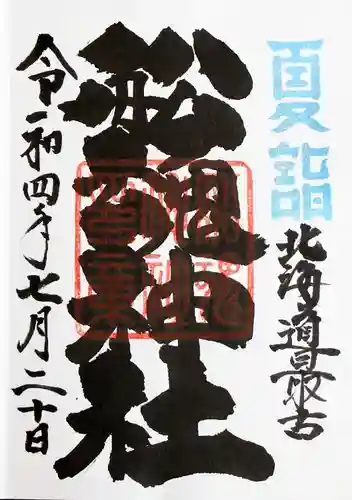 夏詣
北海道最古
舩魂神社
令和四年七月二十日